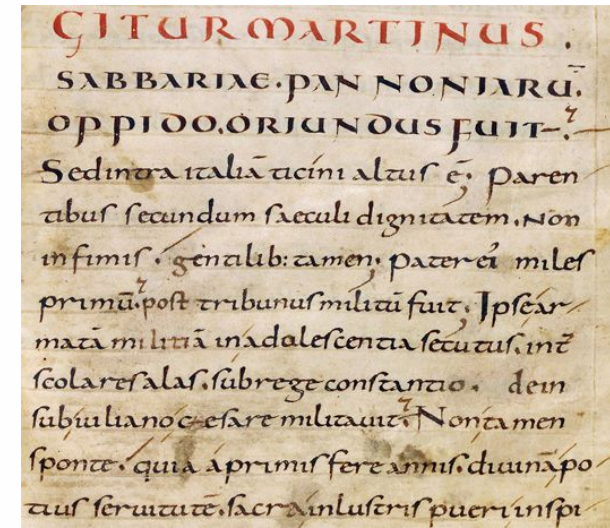 GITUR MARTINUS .
SABBARIAE. PANNONIARŪ.
OPPIDO. ORIUNDUS FUIT.
Sed intra italiā ticini altus ē; Paren
tibus secundum saeculi dignitatem. Non
infimis. gentilib: tamen; Pater eī miles
primū. post tribunus militū fuit; Ipse ar
matā militiā in adolescentia secutus. int̄
scolares alas. sub rege constantio. dein
sub iuliano cęsare militauit. Non tamen
sponte. quia a primis fere annis. diuinā po
tius seruitutē. sacra inlustris pueri inspi